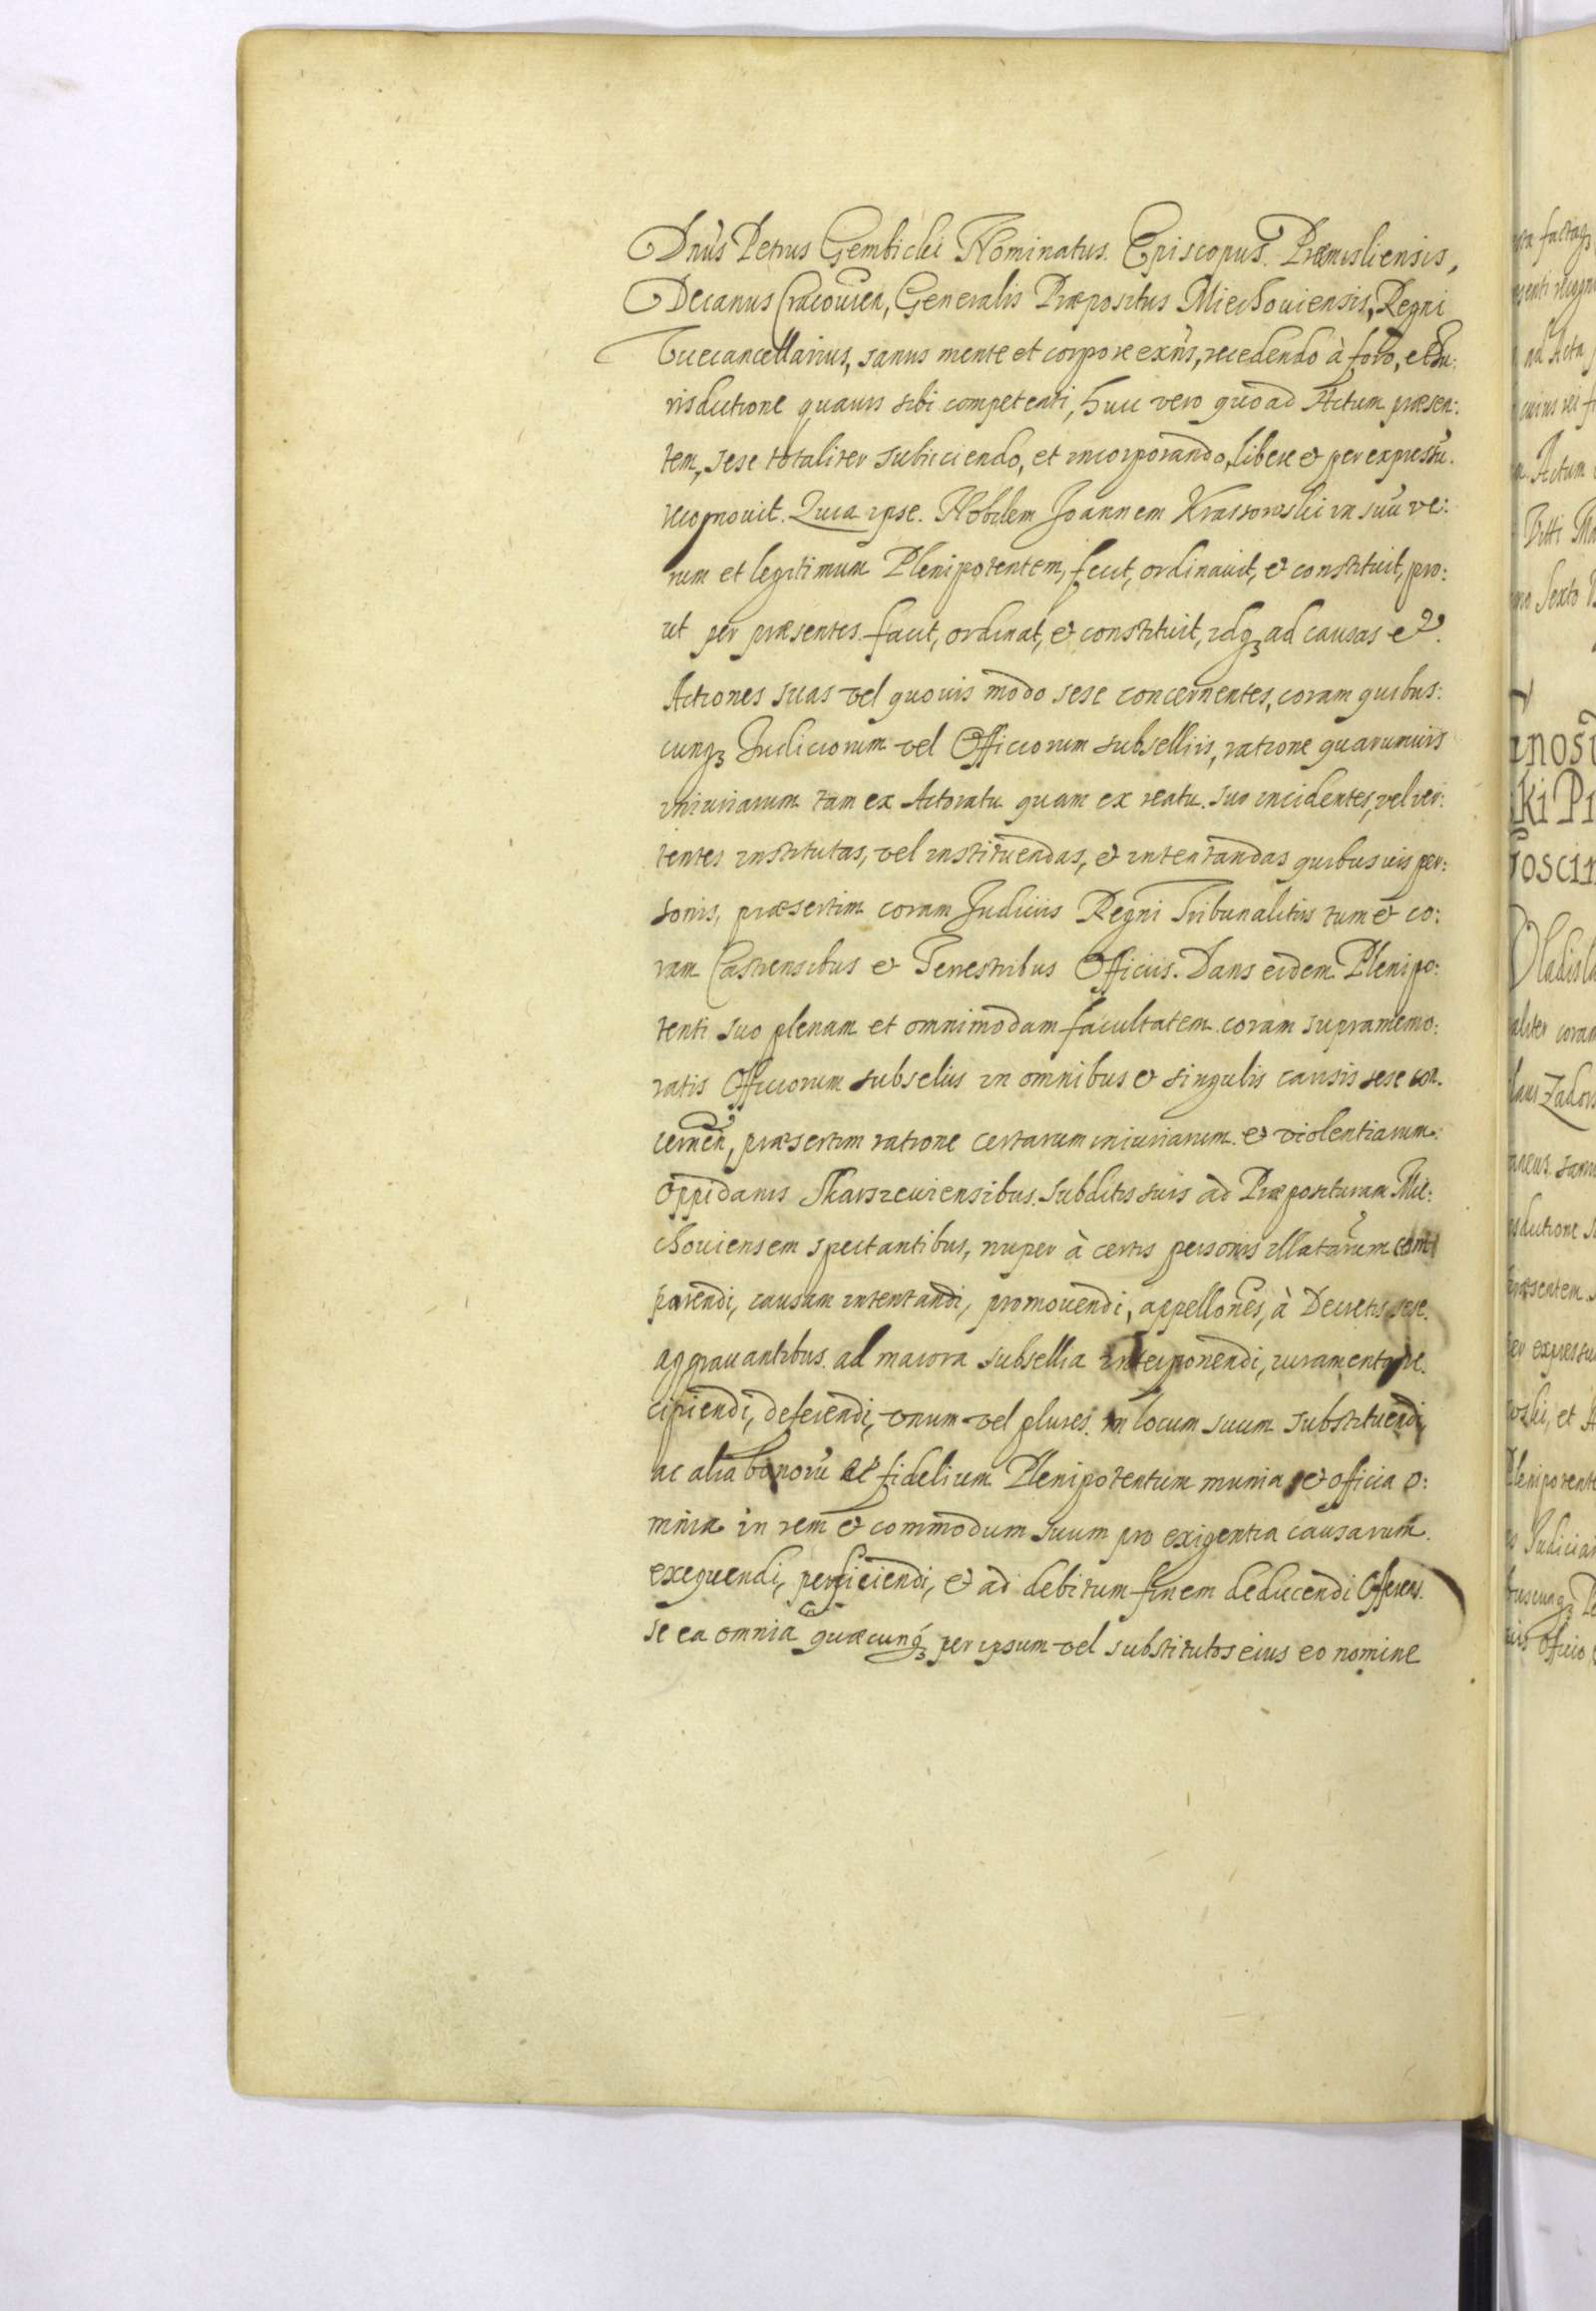 Dnus Petrus Gembicki Nominatus Episcopus Præmisliensis,
Decanus Cracouien, Generalis Præpositus Miechouiensis, Regni
Vicecancellarius, sanus mente et corpore exns, recedendo à foro, et Iu:
risdictione quauis sibi competenti, huic vero quoad Actum præsen:
tem, sese totaliter subijciendo, et incorporando, libere et per expressu
recognouit. Quia ipse Nobilem Joannem Krassowski in suũ ve:
rum et legitimum Plenipotentem, fecit, ordinauit, et constituit, pro:
ut per præsentes facit, ordinat, et constituit, idq3 ad causas et
Actiones suas vel quouis modo sese concernentes, coram quibus:
cunq3 Iudiciorum vel Officiorum subsellijs, ratione quarumuis
iniuriarum tam ex Actoratu quam ex reatu suo incidentes, vel ver:
tentes institutas, vel instituendas, et intentandas quibusuis per:
sonis, præsertim coram Iudicijs Regni Tribunalitijs tum et co:
ram Castrensibus et Terrestribus Officijs. Dans eidem Plenipo:
tenti suo plenam et omnimodam facultatem coram supramemo:
ratis Officiorum subselijs in omnibus et singulis causis sese con.
cernen, præsertim ratione certarum iniuriarum et violentiarum
Oppidanis Skarszeuiensibus Subditis suis ad Præposituram Mie:
chouiensem spectantibus, nuper à certis personis illatarum com
parendi, causam intentandi, promouendi, appellones, à Decretis sese
aggrauantibus ad maiora subsellia interponendi, iuramenta re
cipiendi, deferendi, vnum vel plures in locum suum substituendi,
ac alia bonorũ ac fidelium Plenipotentum munia et officia o:
mnia in rem et commodum suum pro exigentia causarum
exequendi, perficiendi, et ad debitum finem deducendi Offerens
se ea omnia quæcunq3 per ipsum vel substitutos eius eo nomine